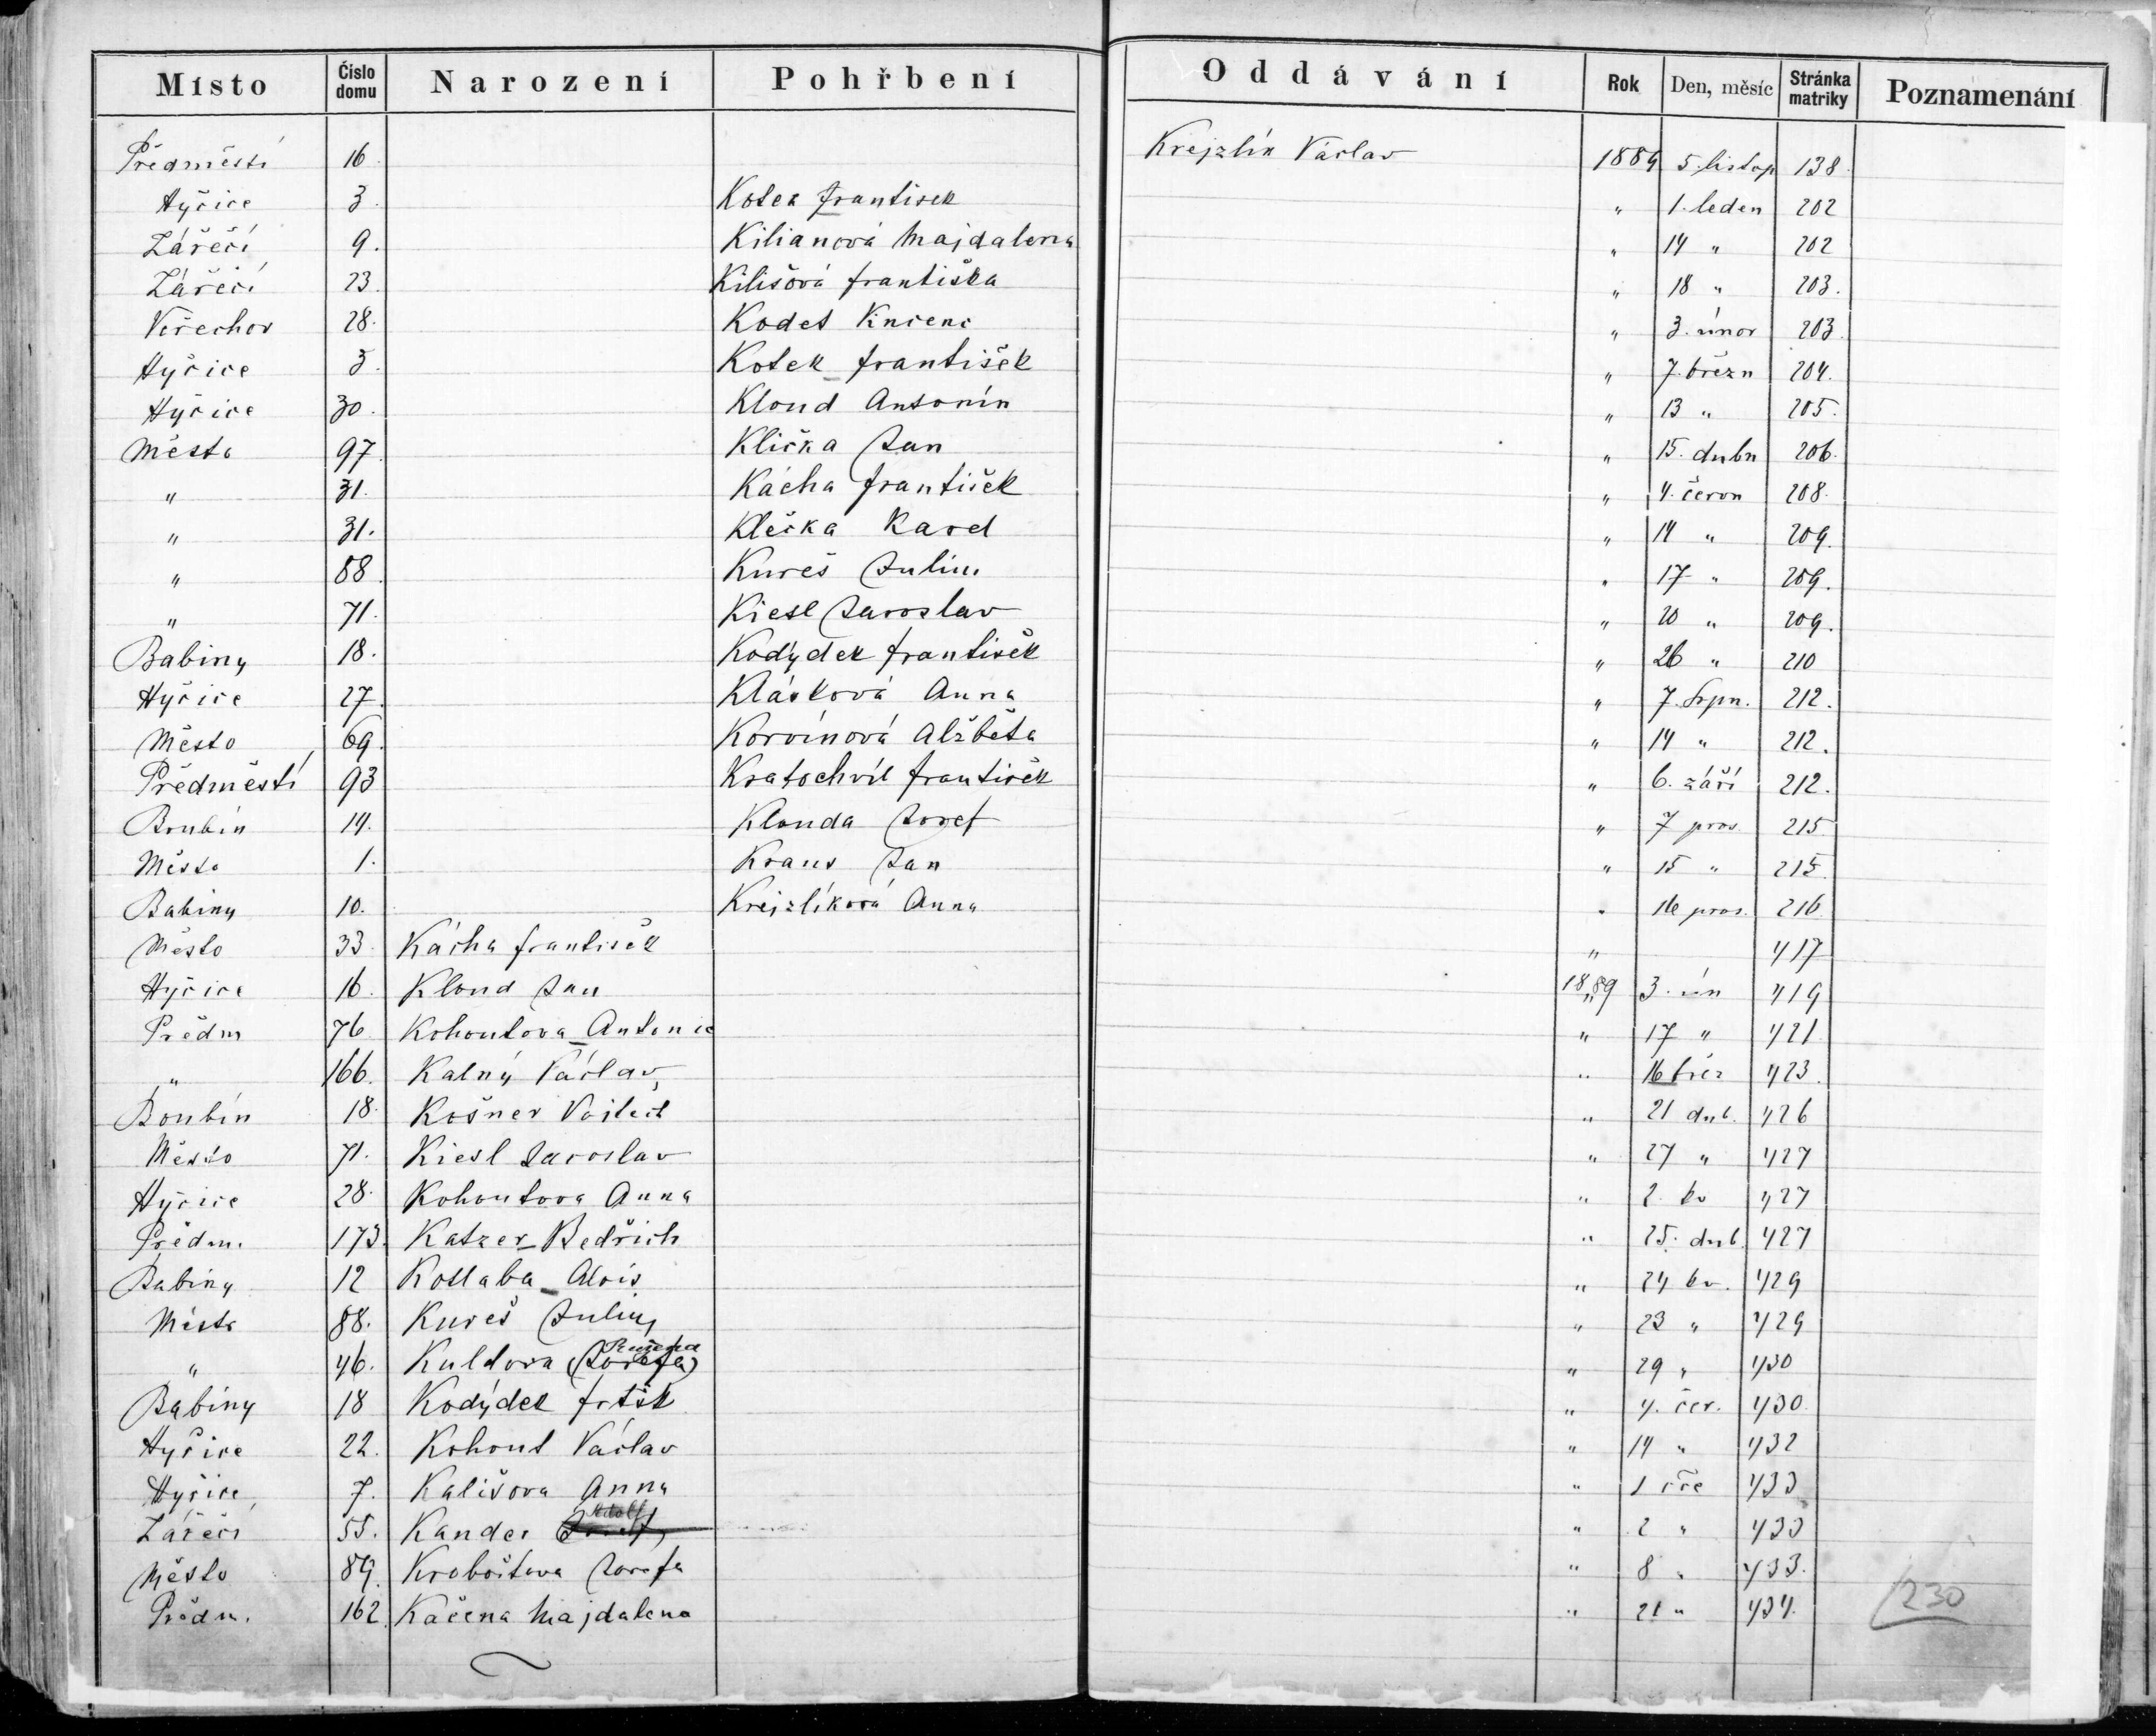 Místo Číslo domu Narození Pohřbení Oddávání Rok Den, měsíc Stránka matriky Poznamenání
Předměstí 16. Krejzlík Václav 1889 5. listop 138.
Hyčice 3. Kotek František " 1. leden 202
Zářečí 9. Kilianová Majdalena " 14 " 202
Zářečí 23. Kilišová Františka " 18 " 203.
Věřechov 28. Kodet Vincenc " 3. únor 203.
Hyčice 3. Kotek František " 7. březn 204.
Hyčice 30. Kloud Antonín " 13 " 205.
Město 97. Klička Jan " 15. dubn 206.
" 31. Kácha František " 4. červn 208.
" 31. Klečka Karel " 14 " 209.
" 88. Kureš Julius " 17 " 209.
" 71. Kiesl Jaroslav " 20 " 209.
Babiny 18. Kodýdek František " 26 " 210
Hyčice 27. Klásková Anna " 7. srpn. 212.
Město 69. Korvínová Alžběta " 14 " 212.
Předměstí 93 Kratochvíl František " 6. září 212.
Boubín 14. Klouda Josef " 7 pros. 215
Město 1. Kraus Jan " 15 " 215.
Babiny 10. Krejzlíková Anna " 16 pros. 216
Město 33. Kácha František " 417
Hyčice 16. Kloud Jan 1889 3. ún 419
Předm 76 Kohoutova Antonie " 17 " 421.
" 166. Kalný Václav " 16 břez 423.
Boubín 18. Košner Vojtěch " 21 dub. 426
Město 71. Kiesl Jaroslav " 27 " 427
Hyčice 28. Kohoutova Anna " 2. kv 427
Předm. 173. Katzer Bedřich " 25. dub. 427
Babiny 12 Kotlaba Alois " 24 kv. 429
Město 88. Kureš Julius " 23 " 429
" 46. Kuldova (Josefa) Růžena " 29 " 430
Babiny 18 Kodýdek Frtšk " 4. čer. 430.
Hyčice 22. Kohout Václav " 14 " 432
Hyčice 7. Kališova Anna " 1 čce 433
Zářečí 55. Kander Adolf " 2 " 433
Město 89. Krobočtova Josefa " 8 " 433.
Předm. 162. Kačena Majdalena " 21 " 434.
230